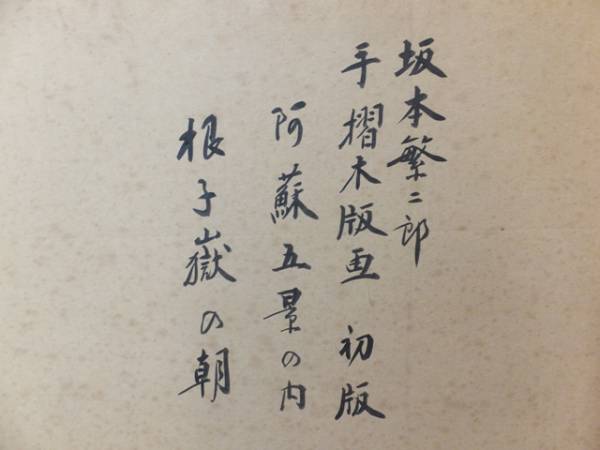 坂本繁二郎
手摺木版画 初版
阿蘇五景の内
根子嶽の朝